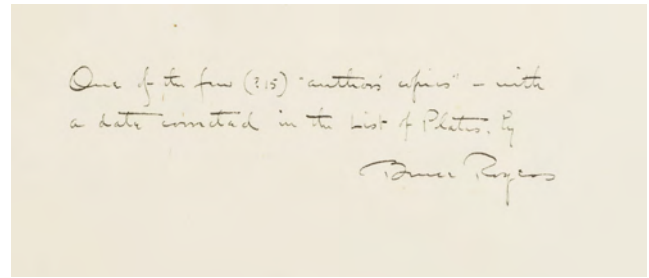 One of the few (?15) "author's copies" – with
a date corrected in the List of Plates, by
Bruce Rogers